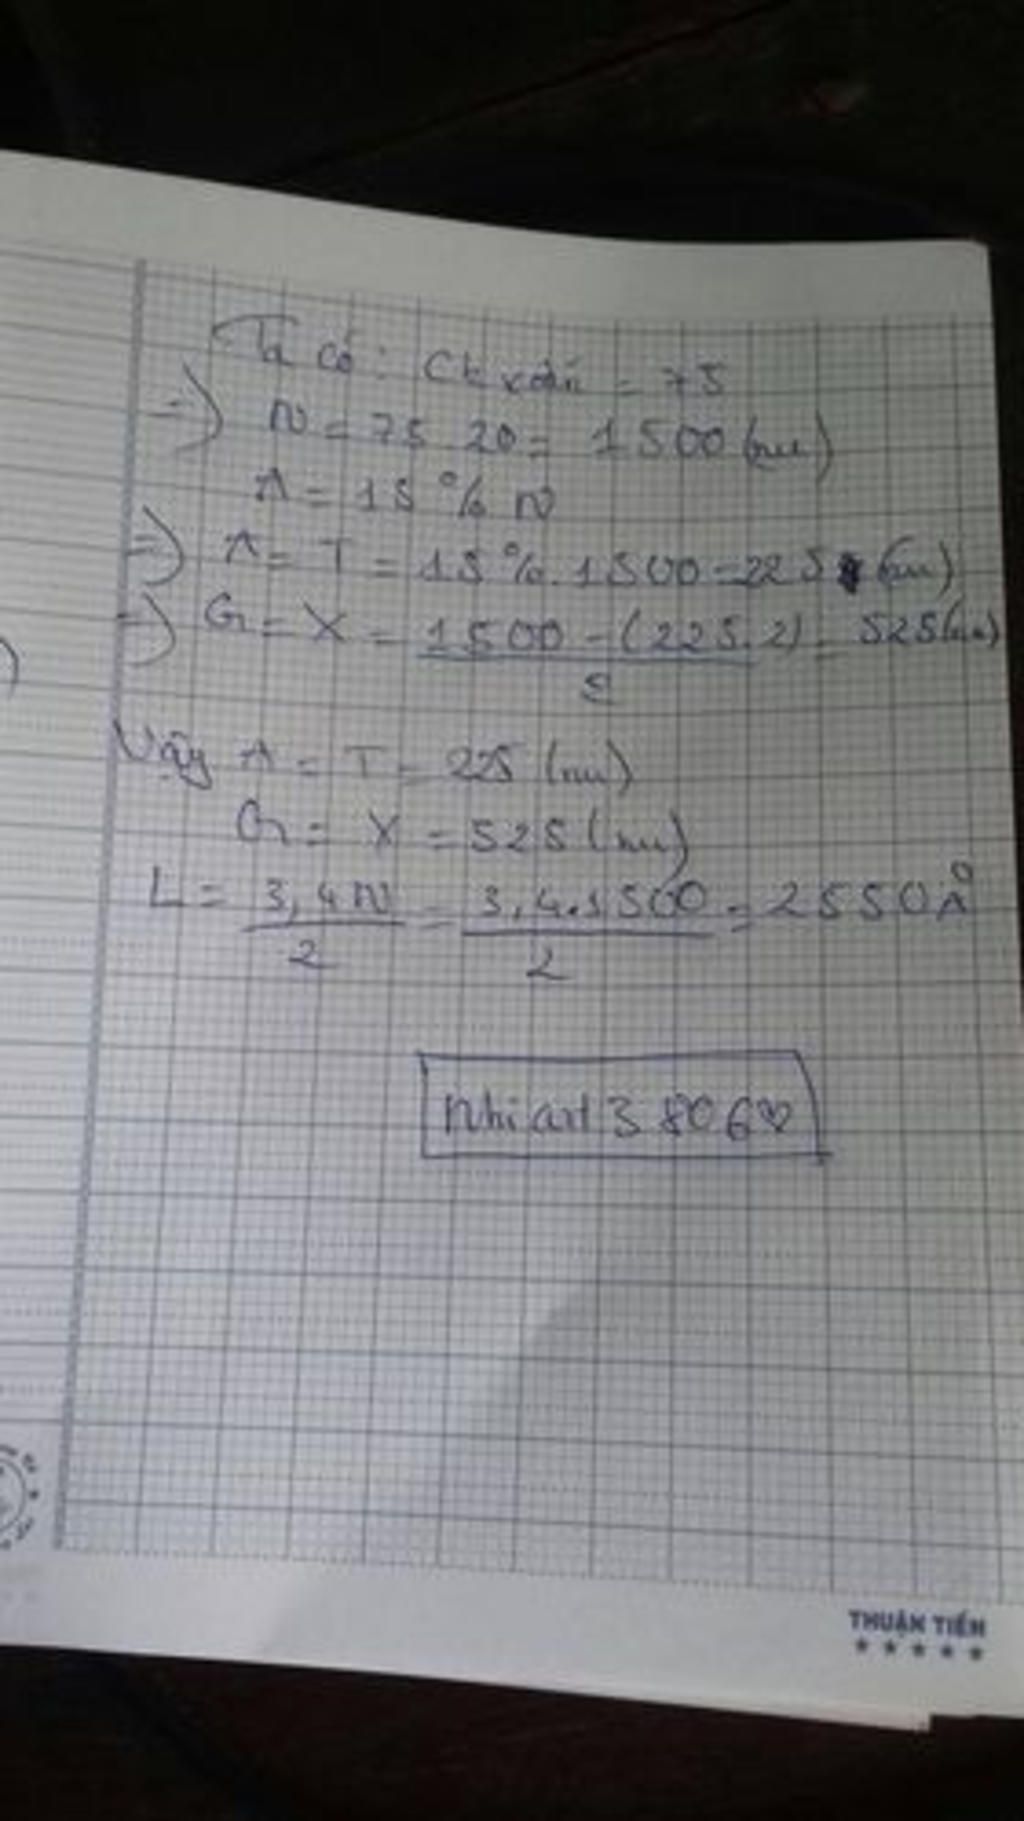 Ta có: Ck xoắn = 75
=> N = 75 20 = 1500 (nu)
A = 15% N
=> A = T = 15%.1500 = 225 (nu)
=> G = X = 1500 - (225.2) / 2 = 525 (nu)
Vậy A = T = 225 (nu)
G = X = 525 (nu)
L = 3,4N / 2 = 3,4.1500 / 2 = 2550 A°
Nhi art 3 806
THUẬN TIẾN
★★★★★